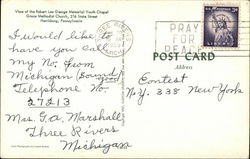 View of the Robert Lee George Memorial Youth Chapel
Grace Methodist Church, 216 State Street
Harrisburg, Pennsylvania
I would like to
have you call
my No. from
Michigan
Telephone No.
27213
Mrs. G.A. Marshall
Three Rivers
Michigan
PRAY
FOR
PEACE
POST CARD
Address
Contest
N.Y. 338 New York